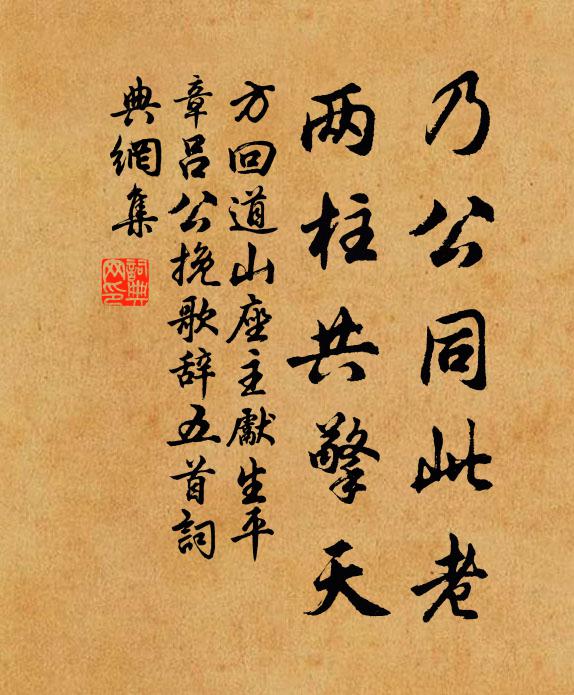 乃公同此老
两柱共擎天
方回道山座主獻生平
章呂公挽歌辞五首詞
典網集
詞典网印